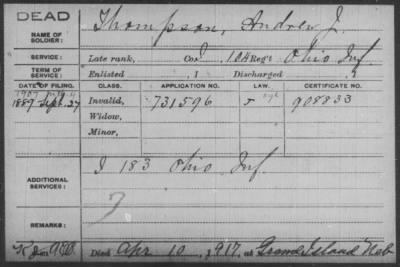 DEAD
NAME OF SOLDIER: Thompson, Andrew J.
SERVICE: Late rank, Co. I, 104 Reg't Ohio Inf.
TERM OF SERVICE: Enlisted , 1 Discharged , 1
DATE OF FILING. CLASS. APPLICATION NO. LAW. CERTIFICATE NO.
1907
1889 Sept. 27 Invalid, 731596 908833
Widow,
Minor,
ADDITIONAL SERVICES: I 183 Ohio Inf.
REMARKS:
Died Apr 10, 1917, at Grand Island Neb